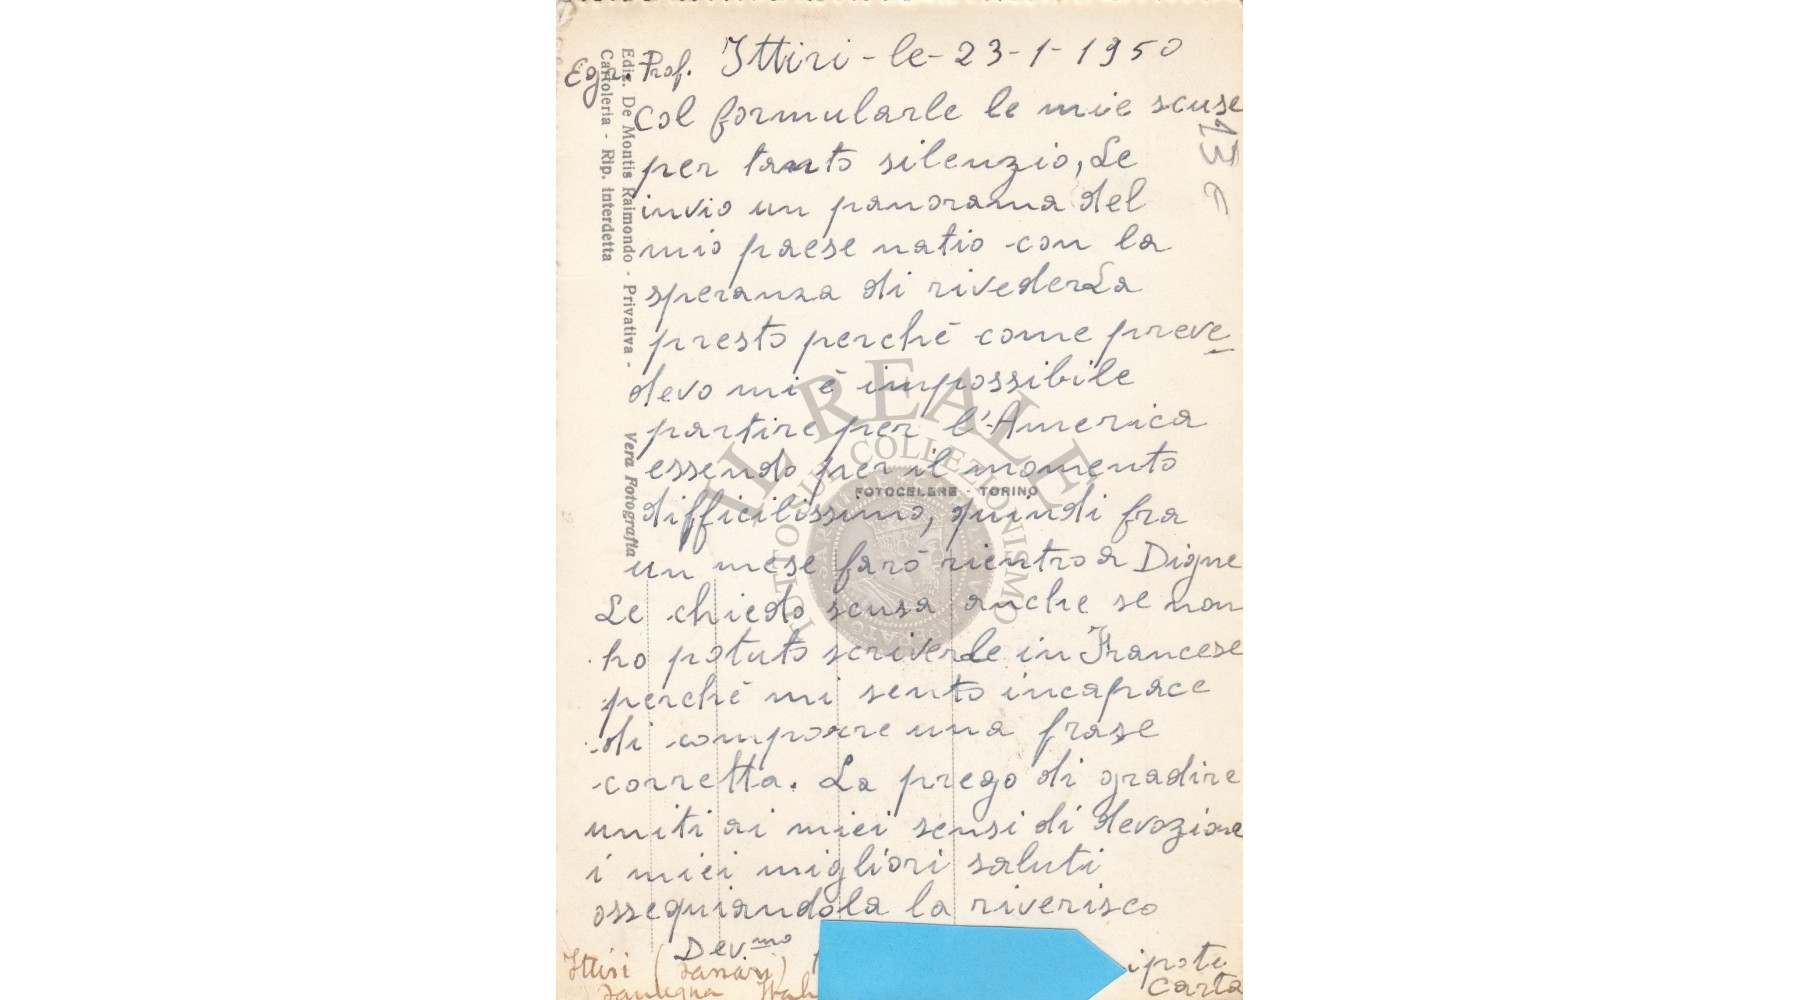 Ittiri - le - 23 - 1 - 1950
Egr. Prof.
Col formularle le mie scuse
per tanto silenzio, Le
invio un panorama del
mio paese natio con la
speranza di rivederLa
presto perchè come preve
devo mi è impossibile
partire per l'America
essendo per il momento
difficilissimo, quindi fra
un mese farò rientro a Digne
Le chiedo scusa anche se non
ho potuto scriverLe in Francese
perchè mi sento incapace
di comporre una frase
corretta. La prego di gradire
uniti ai miei sensi di devozione
i miei migliori saluti
ossequiandola la riverisco
Dev.mo
ipote
Carta
Ittiri (Sassari)
Sardegna
13 c
Ediz. De Montis Raimondo - Privativa -
Cartoleria - Rip. interdetta
Vera Fotografia
FOTOCELERE - TORINO
IL REALE
TUTTO IL COLLEZIONISMO